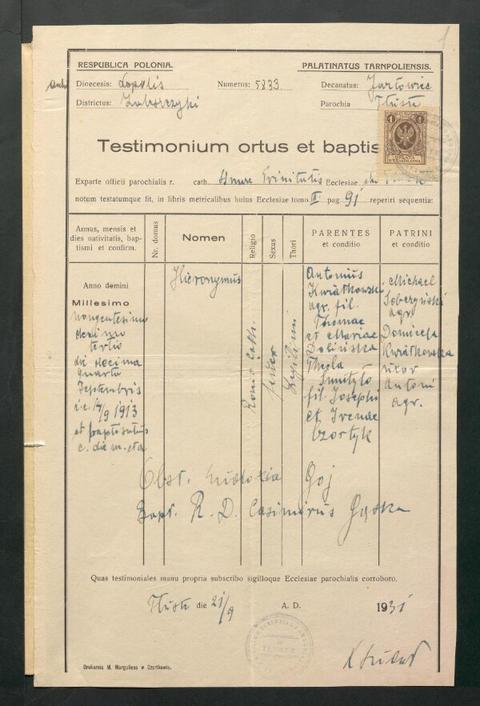 RESPUBLICA POLONIA.
PALATINATUS TARNPOLIENSIS.
Dioecesis: Leopolis
Numerus: 5833
Decanatus: Jazłowiec
Districtus: Zaleszczyki
Parochia Tłuste
Testimonium ortus et baptis
Exparte officii parochialis r. cath. Trinitatis Ecclesiae
notum testatumque fit, in libris metricalibus huius Ecclesiae tomo II pag 91 reperiri sequentia:
Annus, mensis et dies nativitatis, baptismi et confirm.
Nr. domus
Nomen
Religio
Sexus
Thori
PARENTES et conditio
PATRINI et conditio
Anno domini
Millesimo
nongentesimo
decimo
tertio
die decima
quarta
Septembris
i.e. 14/9 1913
et baptisatus
e. die m. eta
Hieronymus
Antonius
Kwiatkowski
agr. fil.
Thomae
et Mariae
Thecla
fil. Josephi
et Irenae
Czortyk
Michael
agr.
Kwiatkowska
uxor
Antoni
agr.
Obst. Goj
Bapt. R. D. Casimirus Gąska
Quas testimoniales manu propria subscribo sigilloque Ecclesiae parochialis corroboro.
Tłuste die 21/9 A. D. 1931
Drukarnia M. Marguliesa w Czortkowie.